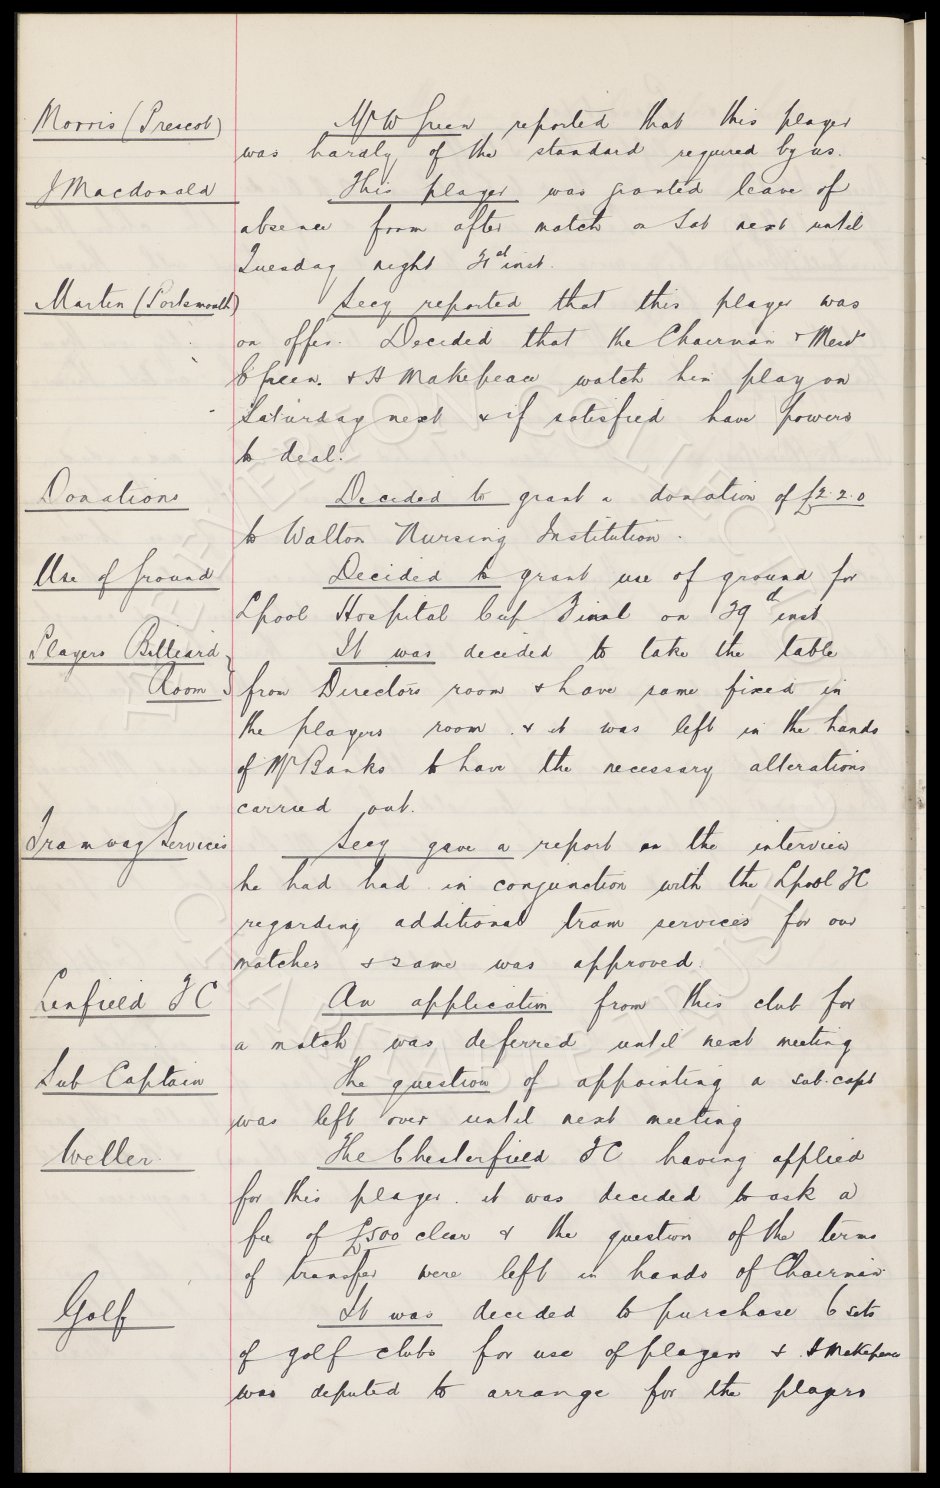 Morris (Prescot)
Mr W Green reported that this player
was hardly of the standard required by us.
J Macdonald
This player was granted leave of
absence from after match on Sat next until
Tuesday night 21st inst.
Martin (Portsmouth)
Secy reported that this player was
on offer. Decided that the Chairman & Messrs
Green. & H Makepeace watch him play on
Saturday next & if satisfied have powers
to deal.
Donations
Decided to grant a donation of £2.2.0
to Walton Nursing Institution.
Use of Ground
Decided to grant use of ground for
Lpool Hospital Cup Final on 29th inst
Players Billiard
Room
It was decided to take the table
from Directors room & have same fixed in
the players room. & it was left in the hands
of Mr Banks to have the necessary alterations
carried out.
Tramway Services
Secy gave a report on the interview
he had had in conjunction with the Lpool FC
regarding additional tram services for our
matches & same was approved.
Linfield FC
An application from this club for
a match was deferred until next meeting
Sub Captain
The question of appointing a sub. capt
was left over until next meeting
Weller.
The Chesterfield FC having applied
for this player. it was decided to ask a
fee of £500 clear & the question of the terms
of transfer were left in hands of Chairman.
Golf
It was decided to purchase 6 sets
of golf clubs for use of players & H Makepeace
was deputed to arrange for the players